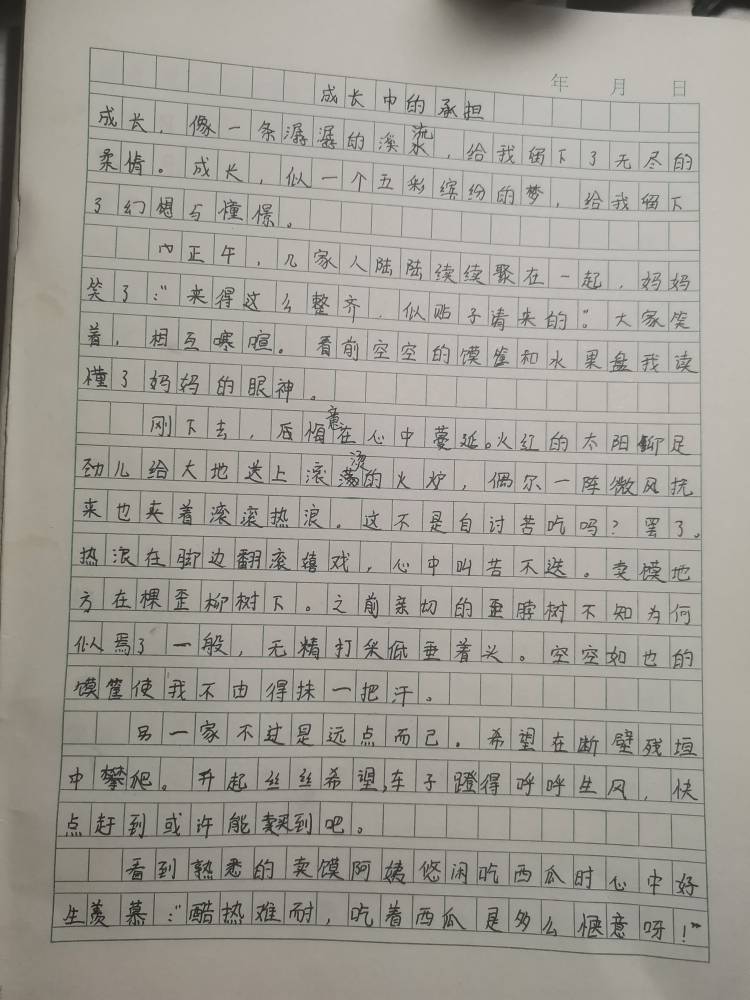 年 月 日
成长中的承担
成长，像一条潺潺的溪流水，给我留下了无尽的
柔情。成长，似一个五彩缤纷的梦，给我留下
了幻想与憧憬。
正午，几家人陆陆续续聚在一起，妈妈
笑了：“来得这么整齐，似贴子请来的。”大家笑
着，相互寒暄。看前空空的馍筐和水果盘我读
懂了妈妈的眼神。
刚下去，后悔意在心中蔓延。火红的太阳铆足
劲儿给大地送上滚滚烫的火炉，偶尔一阵微风抚
来也夹着滚滚热浪。这不是自讨苦吃吗？罢了。
热浪在脚边翻滚嬉戏，心中叫苦不迭。卖馍地
方在棵歪柳树下。之前亲切的歪脖树不知为何
似焉了一般，无精打采低垂着头。空空如也的
馍筐使我不由得抹一把汗。
另一家不过是远点而已。希望在断壁残垣
中攀爬。升起丝丝希望，车子蹬得呼呼生风，快
点赶到或许能买到吧。
看到熟悉的卖馍阿姨悠闲吃西瓜时心中好
生羡慕：“酷热难耐，吃着西瓜是多么惬意呀！”